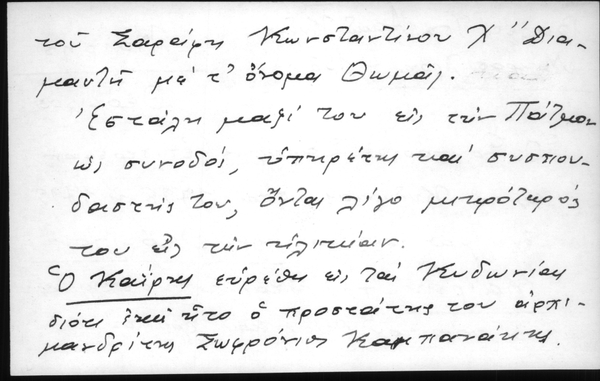 τοῦ Σαράφη Κωνσταντίνου Χ" Δια-
μαντῆ μέ τ' ὄνομα Θωμᾶς.
Ἐστάλη μαζί του εἰς τήν Πάτμον
ὡς συνοδός, ὑπηρέτης καί συσπου-
δαστής του, ὄντας λίγο μικρότερός
του εἰς τήν ἡλικίαν.
Ὁ Καΐρης εὑρέθη εἰς τάς Κυδωνίας
διότι ἐκεῖ ἦτο ὁ προστάτης του ἀρχι-
μανδρίτης Σωφρόνιος Καμπανάκης.